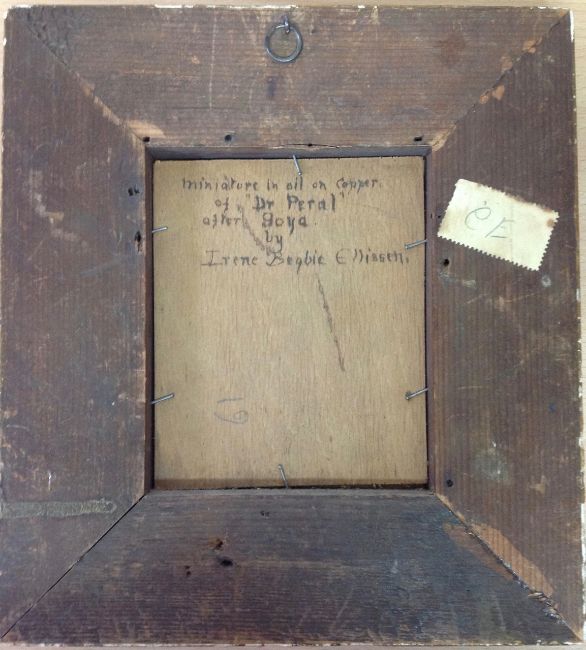 Miniature in oil on Copper.
of "Dr Peral"
after Goya.
by
Irene Begbie Ellissen.